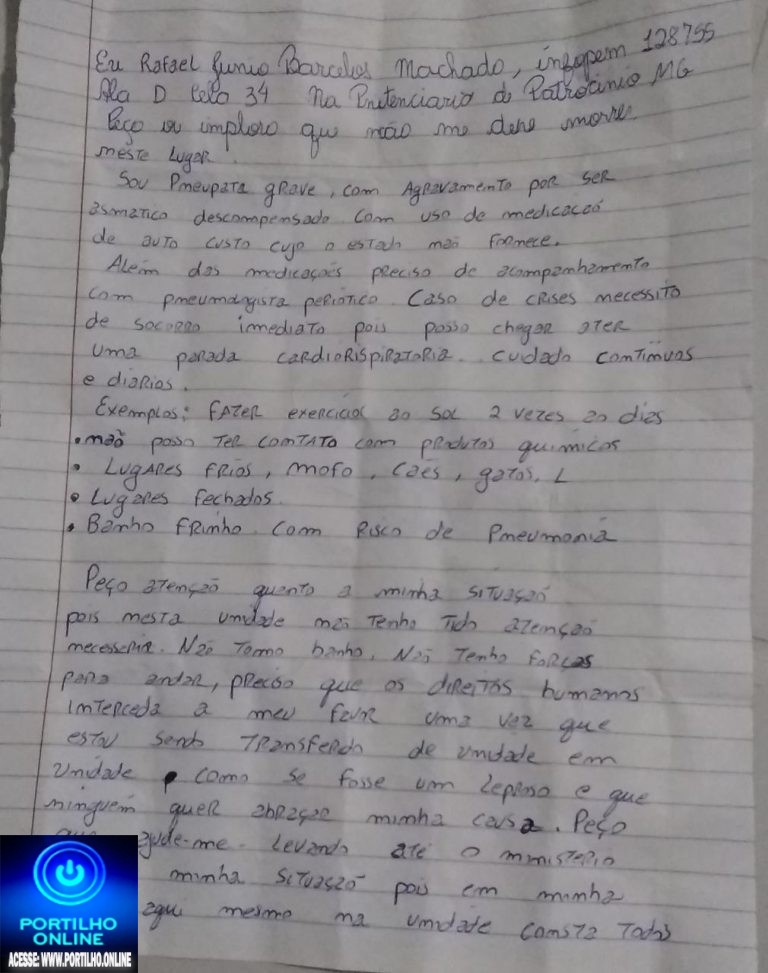 Eu Rafael Junio Barcelos Machado, infopem 128755
Ala D cela 34 Na Penitenciario de Patrocinio MG
Peço ou imploro que não me dexe morrer
neste Lugar.
Sou Pneupata grave, com Agravamento por ser
asmatico descompensado com uso de medicacaõ
de auto custo cujo o estado naõ fornece.
Alem das medicaçoẽs preciso de acompanhamento
com pneumologista periotico. Caso de crises necessito
de socorro imediato pois posso chegar ater
uma parada cardiorispiratoria. cuidado continuos
e diarios.
Exemplos: FAZER exercicios ao sol 2 vezes ao dias
• naõ posso TER comtato com produtos quimicos
• LUGARES FRIOS, mofo, cães, gatos, L
• Lugares fechados.
• Banho FRinho com Risco de Pneumonia
Peço atençaõ quanto a minha situaçaõ
pois nesta unidade naõ Tenho Tido atençaõ
necessaria. Naõ Tomo banho, Naõ Tenho forças
para andar, preciso que os direitos humanos
interceda a meu favor uma vez que
estou sendo transferido de unidade em
unidade, como se fosse um leproso e que
ninguem quer abraçar minha causa. Peço
ajude-me. Levando até o ministerio
minha situaçaõ pois em minha
aqui mesmo na unidade consta Todas
PORTILHO
ONLINE
ACESSE: WWW.PORTILHO.ONLINE